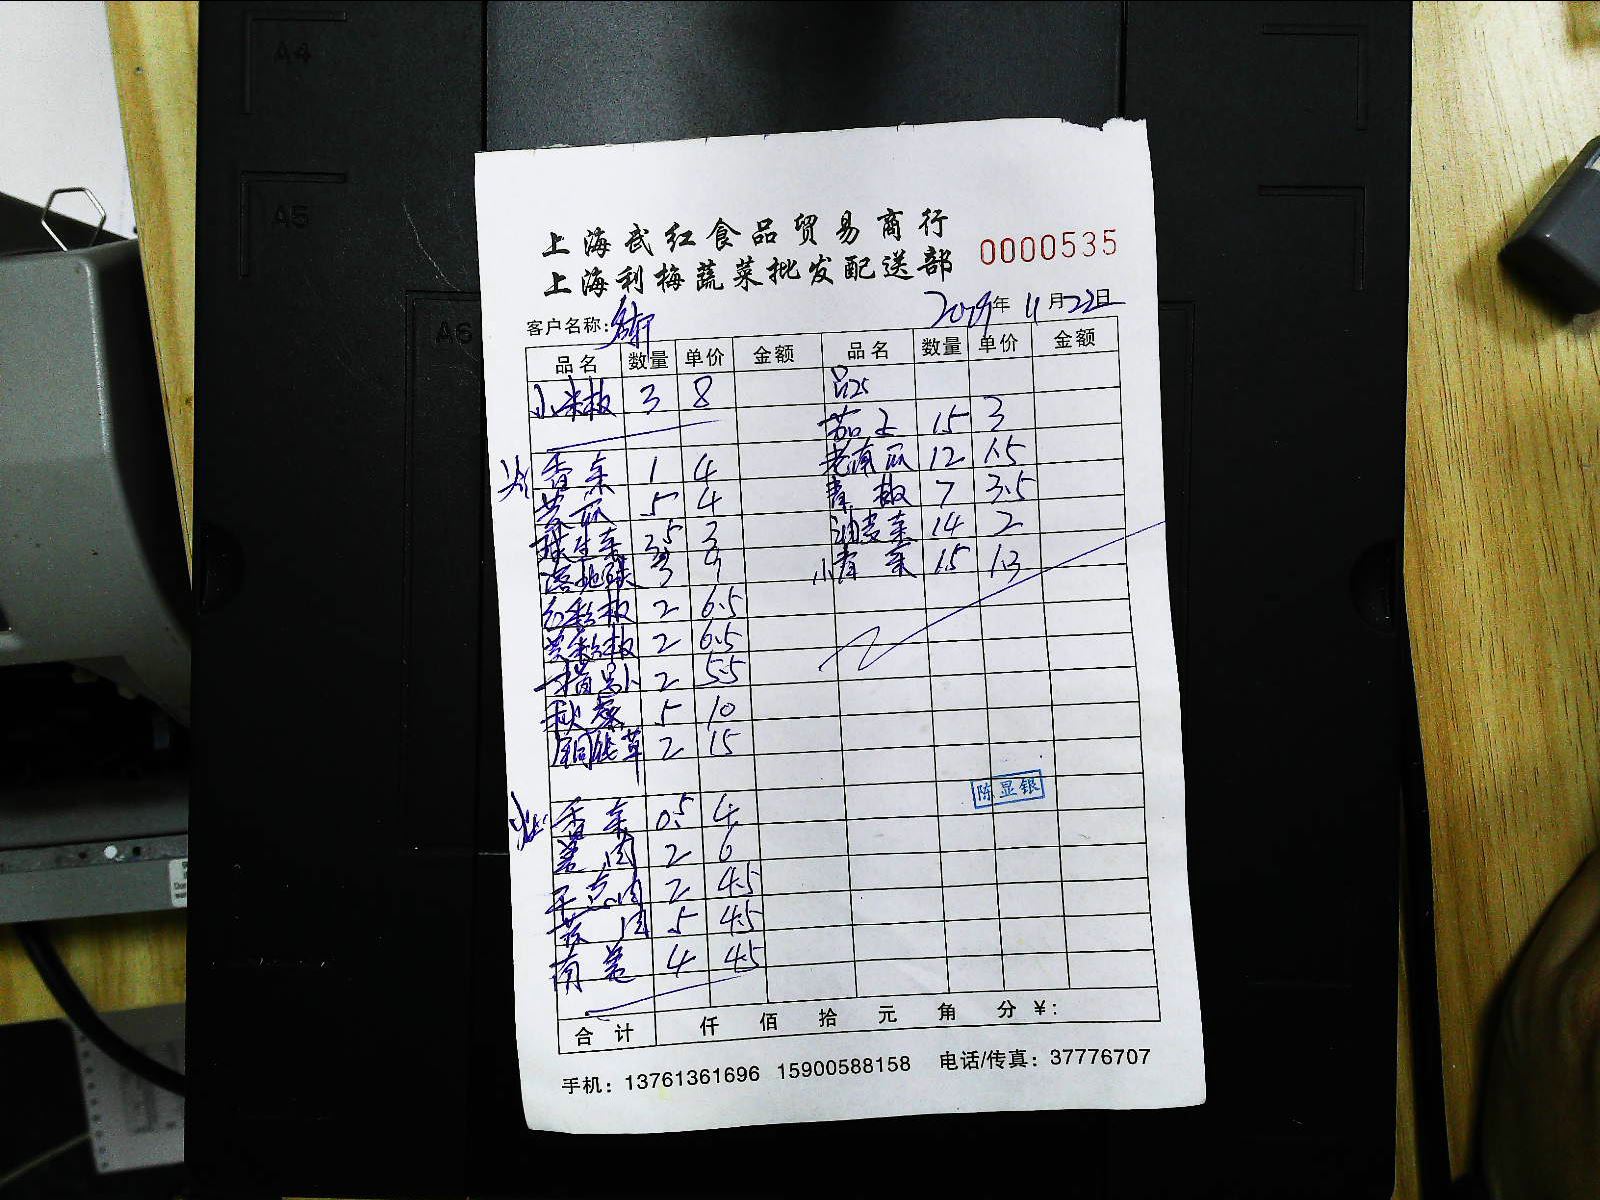 A4
A5
A6
上海武红食品贸易商行
上海利梅蔬菜批发配送部
0000535
客户名称:
2019年 11月22日
品名 数量 单价 金额 品名 数量 单价 金额
小米椒 3 8
茄子 15 3
老南瓜 12 1.5
香菜 1 4 青椒 7 3.5
黄瓜 5 4 油麦菜 14 2
球生菜 3.5 3 小青菜 15 1.3
3 9
红彩椒 2 6.5
黄彩椒 2 6.5
2 5.5
秋葵 5 10
铜钱草 2 15
陈显银
香菜 0.5 4
姜肉 2 6
2 4.5
肉 5 4.5
南姜 4 4.5
合计 仟 佰 拾 元 角 分 ¥:
手机: 13761361696 15900588158 电话/传真: 37776707